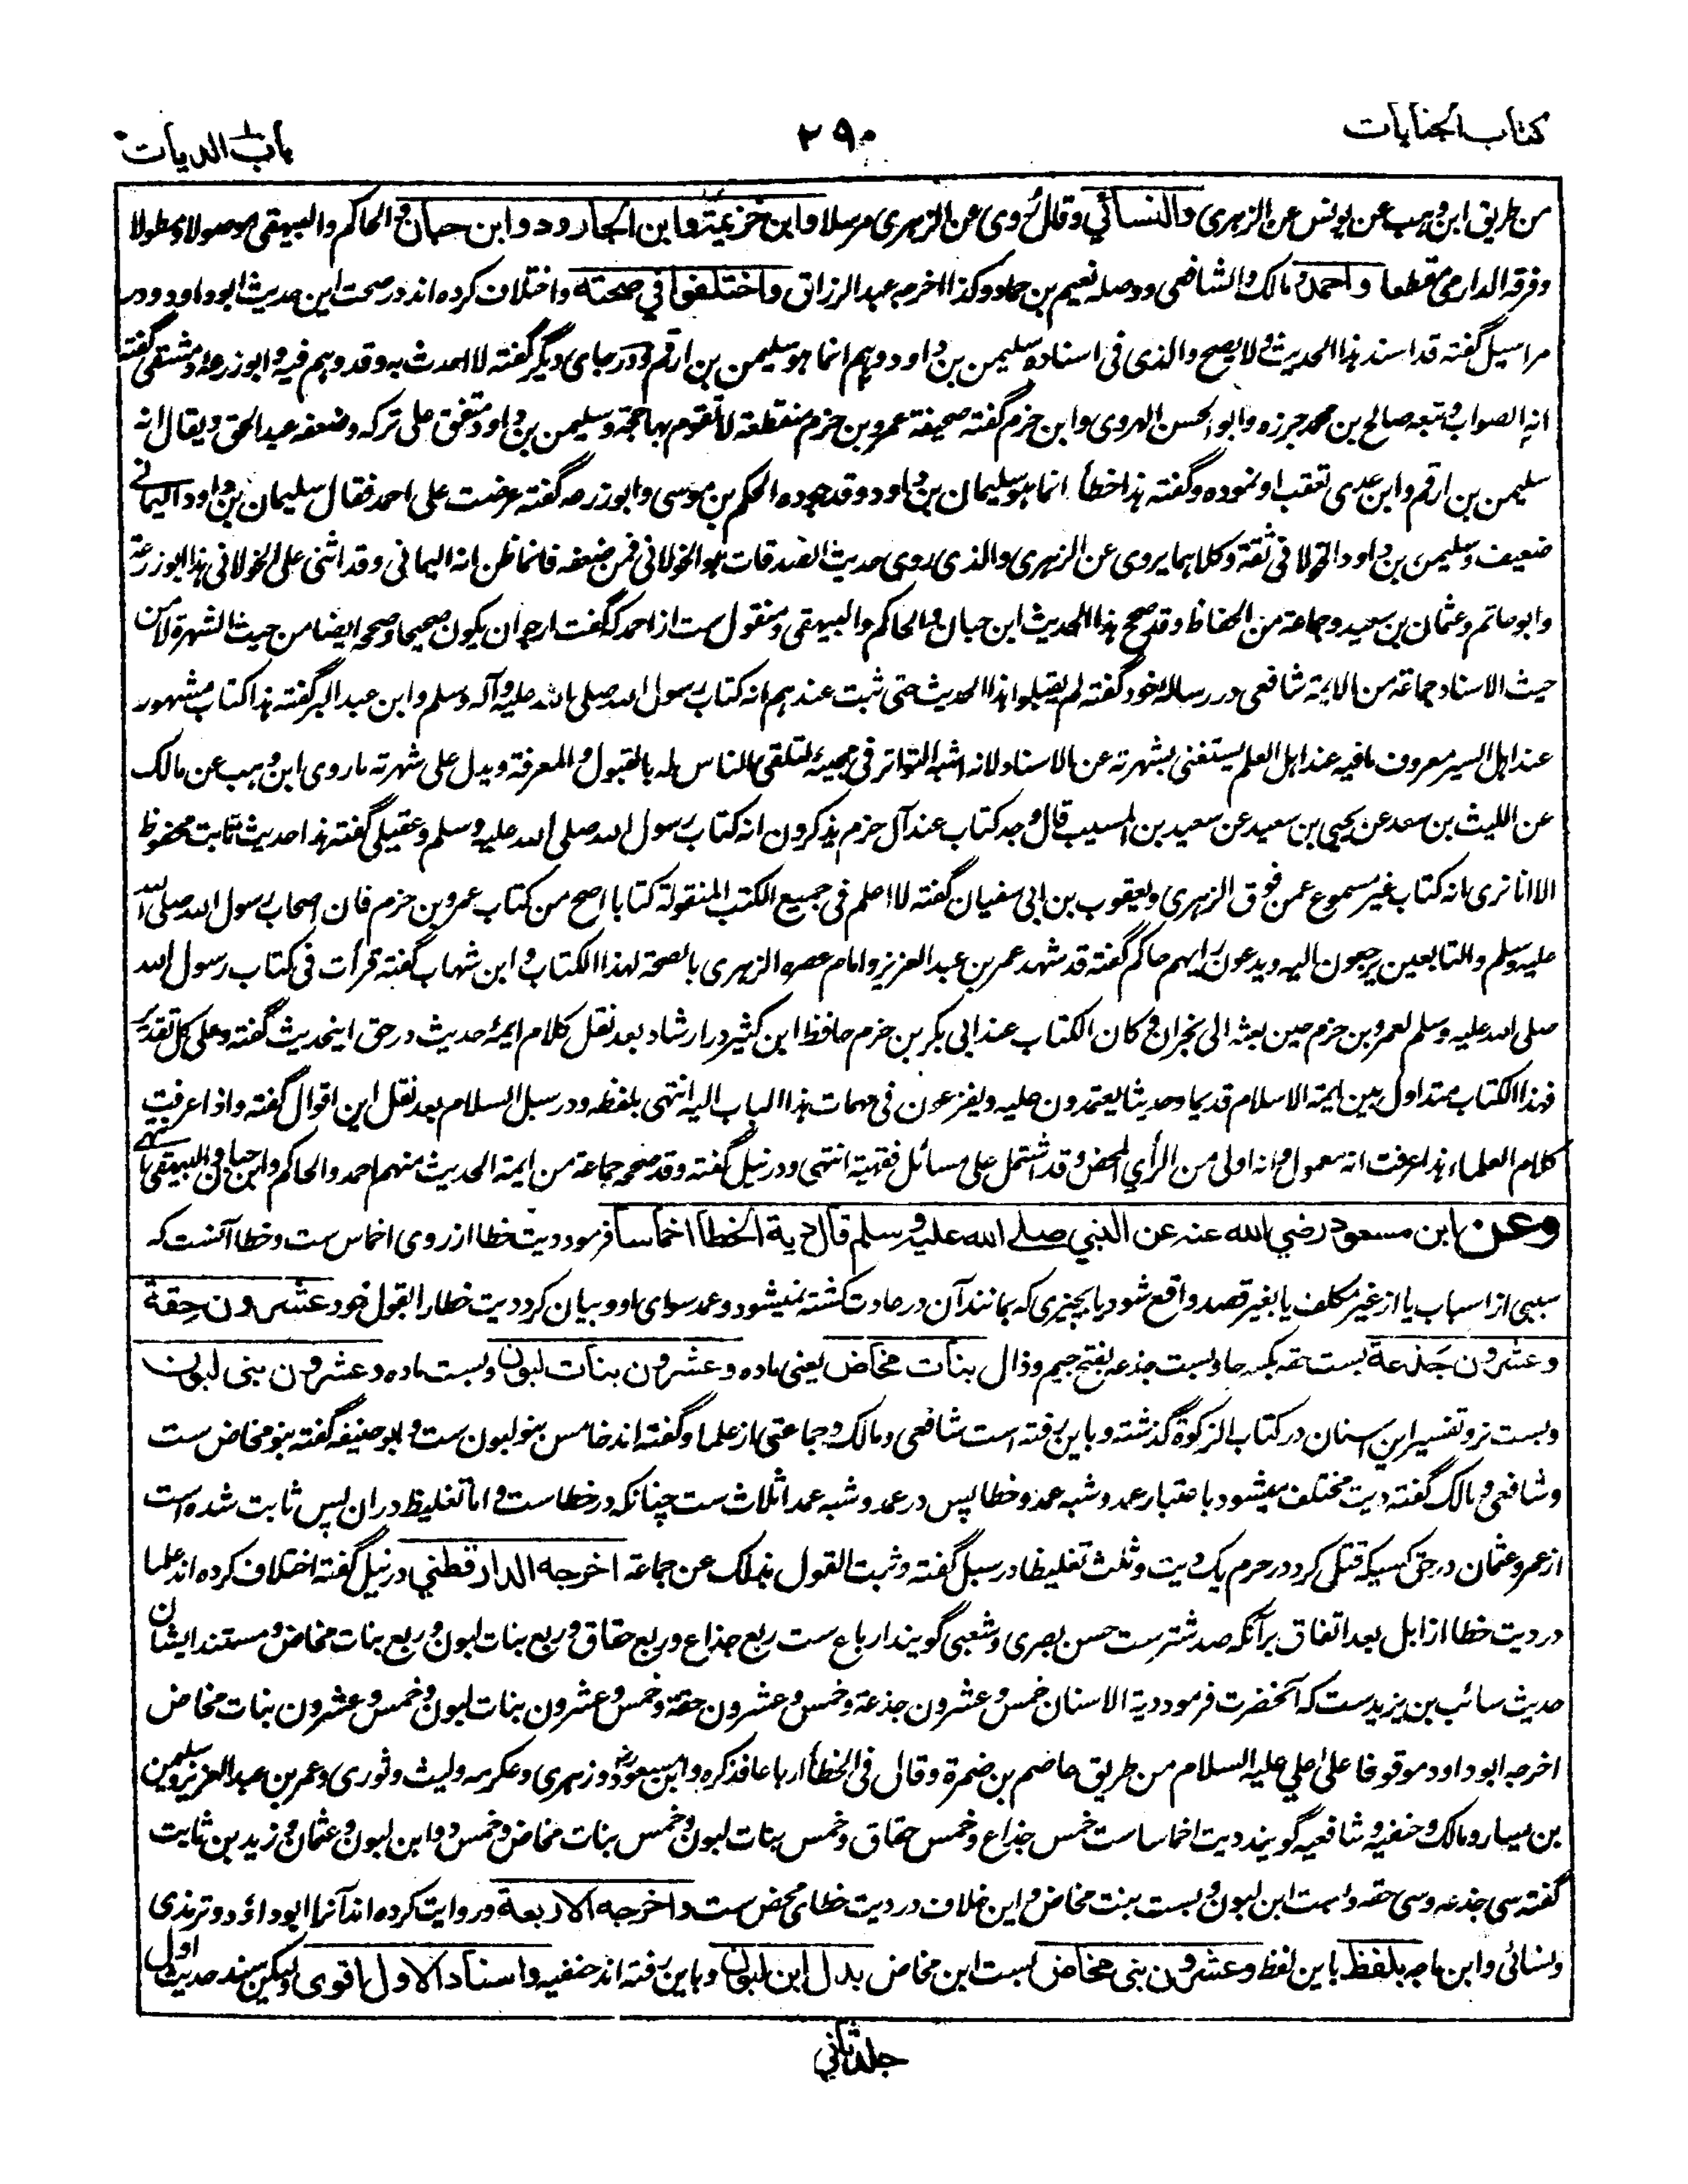 كتاب الجنايات
٢٩٠
باب الديات
من طريق ابن وهب عن يونس عن الزهرى والنسائي وقال روى عن الزهرى مرسلا وابن خزيمة وابن الجارود وابن حبان والحاكم والبيهقى موصولا مطولا
وفرقه الدارمى مقطعا واحمد ومالك والشافعى ووصله نعيم بن حماد وكذا اخرجه عبد الرزاق واختلفوا في صحته واختلاف كرده اند در صحت اين حديث ابو داود در
مراسيل گفته قد اسند هذا الحديث ولا يصح والذى فى اسناده سليمن بن داود وهم انما هو سليمن بن ارقم ودر جاى ديگر گفته لا احدث به وقد وهم فيه وابو زرعه دمشقى گفته
انه الصواب وتبعه صالح بن محمد جرزه وابو الحسن الهروى وابن حزم گفته صحيفة عمرو بن حزم منقطعة لا تقوم بها حجة وسليمن بن داود متفق على تركه وضعفه عبد الحق ويقال انه
سليمن بن ارقم وابن عدى تعقب او نموده وگفته هذا خطأ انما هو سليمان بن داود وقد جوده الحكم بن موسى وابو زرعه گفته عرضت على احمد فقال سليمان بن داود اليمانى
ضعيف وسليمن بن داود الخولانى ثقة وكلاهما يروى عن الزهرى والذى روى حديث الصدقات هو الخولانى فمن ضعفه فانما ظن انه اليمانى وقد اثنى على الخولانى هذا ابو زرعة
وابو حاتم وعثمان بن سعيد وجماعة من الحفاظ وقد صحح هذا الحديث ابن حبان والحاكم والبيهقى ومنقول ست از احمد كه گفت ارجو ان يكون صحيحا وصححه ايضا من حيث الشهرة لا من
حيث الاسناد جماعة من الايمة شافعى در رساله خود گفته لم يقبلوا هذا الحديث حتى ثبت عندهم انه كتاب رسول الله صلى الله عليه وآله وسلم وابن عبد البر گفته هذا كتاب مشهور
عند اهل السير معروف ما فيه عند اهل العلم يستغنى بشهرته عن الاسناد لانه اشبه التواتر فى مجيئه لتلقى الناس له بالقبول والمعرفة ويدل على شهرته ما روى ابن وهب عن مالك
عن الليث بن سعد عن يحيى بن سعيد عن سعيد بن المسيب قال وجد كتاب عند آل حزم يذكرون انه كتاب رسول الله صلى الله عليه وسلم وعقيلى گفته هذا حديث ثابت محفوظ
الا انا نرى انه كتاب غير مسموع عمن فوق الزهرى ويعقوب بن ابى سفيان گفته لا اعلم فى جميع الكتب المنقولة كتابا اصح من كتاب عمرو بن حزم فان اصحاب رسول الله صلى الله
عليه وسلم والتابعين يرجعون اليه ويدعون رايهم حاكم گفته قد شهد عمر بن عبد العزيز وامام عصره الزهرى بالصحة لهذا الكتاب وابن شهاب گفته قرأت فى كتاب رسول الله
صلى الله عليه وسلم لعمرو بن حزم حين بعثه الى نجران وكان الكتاب عند ابى بكر بن حزم حافظ ابن كثير در ارشاد بعد نقل كلام ايمۀ حديث در حق اينحديث گفته وعلى كل تقدير
فهذا الكتاب متداول بين ايمة الاسلام قديما وحديثا يعتمدون عليه ويفزعون فى مهمات هذا الباب اليه انتهى بلفظه ودر سبل السلام بعد نقل اين اقوال گفته واذا عرفت
كلام العلماء هذا عرفت انه معمول به وانه اولى من الرأي المحض وقد اشتمل على مسائل فقهية انتهى ودر نيل گفته وقد صححه جماعة من ايمة الحديث منهم احمد والحاكم وابن حبان والبيهقى انتهى
وعن ابن مسعود رضي الله عنه عن النبي صلى الله عليه وسلم قال دية الخطأ اخماسا فرمود ديت خطا از روى اخماس ست وخطا آنست كه
سببى از اسباب يا از غير مكلف يا بغير قصد واقع شود يا بچيزى كه بمانند آن در عادت كشته نميشود وعمد سواى او وبيان كرد ديت خطا را بقول خود عشرون حقة
وعشرون جذعة بست حقه بكسر حا وبست جذعه بفتح جيم وذال بنات مخاض يعنى ماده وعشرون بنات لبون وبست ماده وعشرون بنى لبون
وبست نر وتفسير اين اسنان در كتاب الزكوة گذشته وباين رفته است شافعى ومالك وجماعتى از علما وگفته اند خامس بنو لبون ست وابو حنيفه گفته بنو مخاض ست
وشافعى ومالك گفته ديت مختلف ميشود باعتبار عمد وشبه عمد وخطا پس در عمد وشبه عمد اثلاث ست چنانكه در خطاست واما تغليظ دران پس ثابت شده است
از عمر وعثمان در حق كسيكه قتلى كرد در حرم يك ديت وثلث تغليظا در سبل گفته وثبت القول بذلك عن جماعة اخرجه الدارقطني در نيل گفته اختلاف كرده اند علما
در ديت خطا از ابل بعد اتفاق برآنكه صد شترست حسن بصرى وشعبى گويند ارباع ست ربع جذاع وربع حقاق وربع بنات لبون وربع بنات مخاض ومستند ايشان
حديث سائب بن يزيد ست كه آنحضرت فرمود دية الاسنان خمس وعشرون جذعة وخمس وعشرون حقة وخمس وعشرون بنات لبون وخمس وعشرون بنات مخاض
اخرجه ابو داود موقوفا على علي عليه السلام من طريق عاصم بن ضمرة وقال فى الخطأ ارباعا فذكره وابن مسعود رض وزهرى وعكرمه وليث وثورى وعمر بن عبد العزيز وسليمن
بن يسار ومالك وحنفيه وشافعيه گويند ديت اخماسا ست خمس جذاع وخمس حقاق وخمس بنات لبون وخمس بنات مخاض وخمس دوا ابن لبون وعثمان وزيد بن ثابت
گفته سى جذعه وسى حقه وبست ابن لبون وبست بنت مخاض واين خلاف در ديت خطاى محض ست واخرجه الاربعة وروايت كرده اند آنرا ابو داؤد وترمذى
ونسائى وابن ماجه بلفظ باين لفظ وعشرون بنى مخاض بست ابن مخاض بدل ابن لبون وباين رفته اند حنفيه واسناد الاول اقوى وليكن سند حديث اول
جلد ثاني